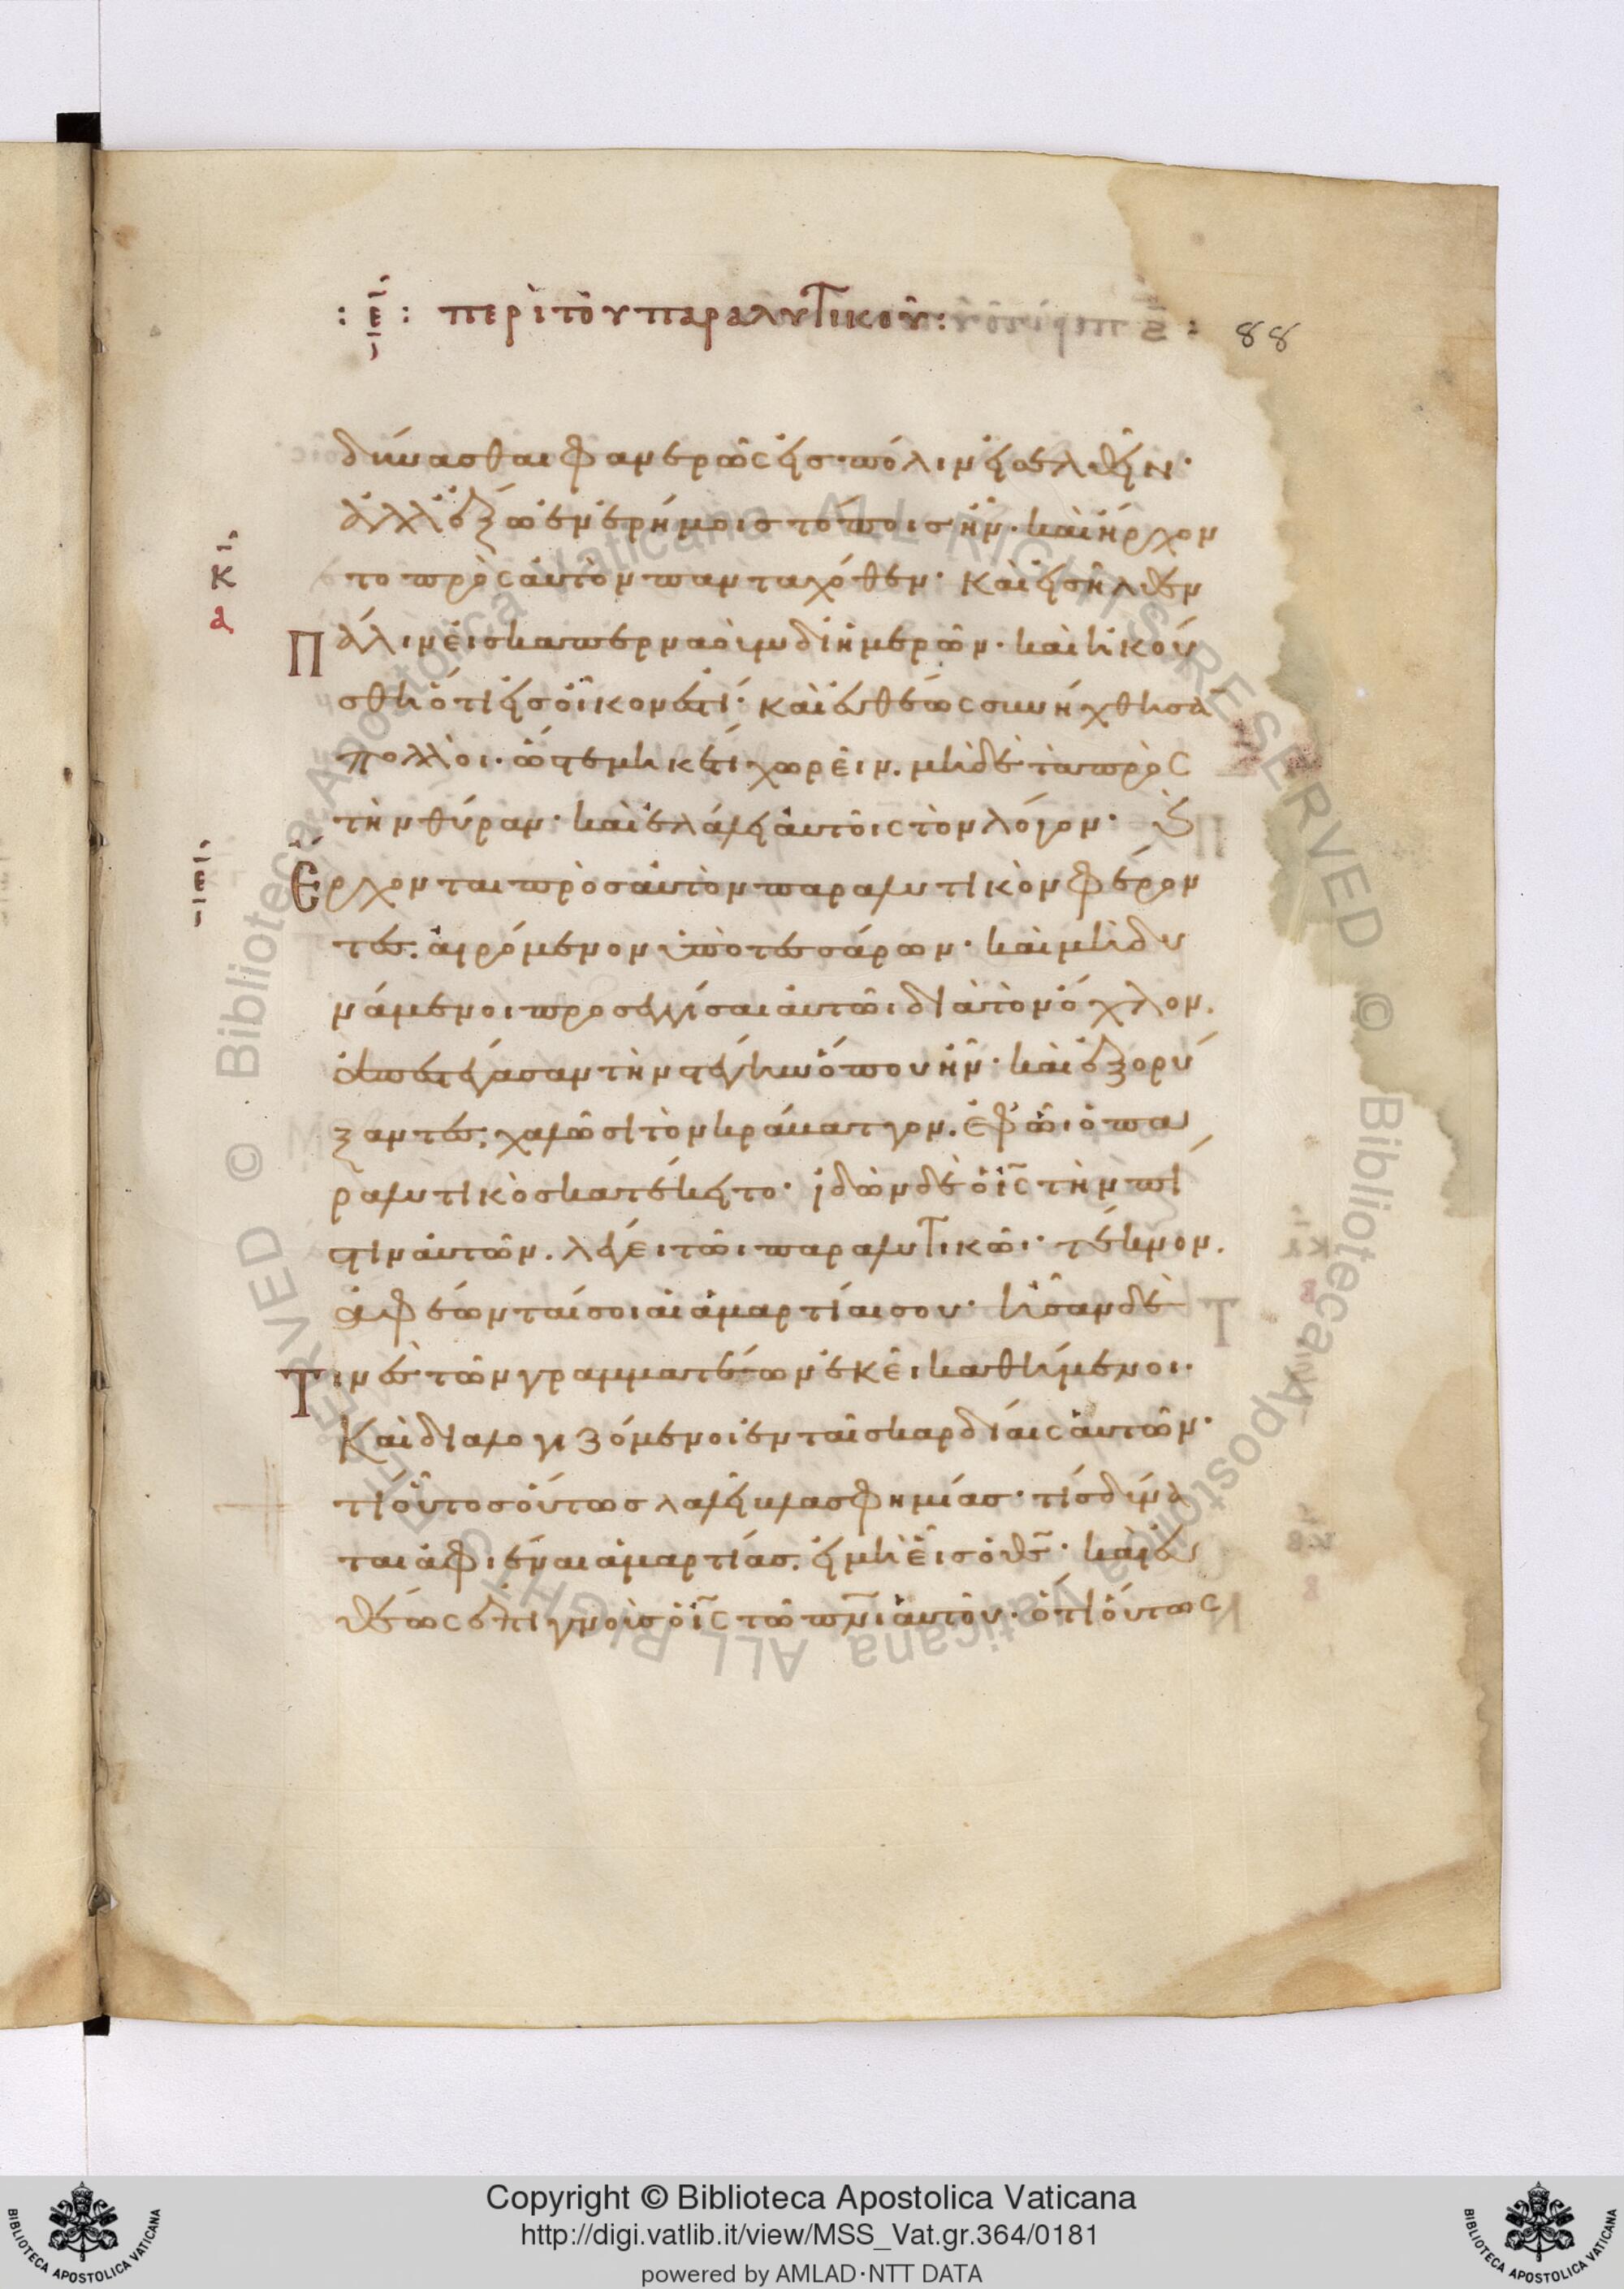 : ε̄ : περὶ τοῦ παραλυτικοῦ :
88
δύνασθαι φανερῶς εἰς πόλιν εἰσελθεῖν·
ἀλλ' ἔξω ἐν ἐρήμοις τόποις ἦν· καὶ ἤρχον
το πρὸς αὐτὸν πανταχόθεν· καὶ εἰσῆλθεν
κ
α
Πάλιν εἰς καπερναοὺμ δι ἡμερῶν· καὶ ἠκού
σθη ὅτι εἰς οἶκον ἐστί· καὶ εὐθέως συνήχθησᾱ
πολλοι· ὥστε μηκέτι χωρεῖν. μηδὲ τὰ πρὸς
τὴν θύραν· καὶ ἐλάλει αὐτοῖς τὸν λόγον·
Ἔρχονται πρὸς αὐτὸν παραλυτικὸν φέρον
τες. αἰρόμενον ὑπὸ τεσσάρων· καὶ μὴ δυ
νάμενοι προσεγγίσαι αὐτῶι διὰ τὸν ὄχλον.
ἀπεστέγασαν τὴν στέγην ὅπου ἦν· καὶ ἐξορύ
ξαντες, χαλῶσι τὸν κράββατον. ἐφ' ὧι ὁ πα
ραλυτικὸς κατέκειτο· ἰδὼν δὲ ὁ ις̄ τὴν πί
στιν αὐτῶν. λέγει τῶι παραλυτικῶι· τέκνον.
ἀφέωνταί σοι αἱ ἁμαρτίαι σου· ἦσαν δὲ
Τινὲς τῶν γραμματέων ἐκεῖ καθήμενοι.
Καὶ διαλογιζόμενοι ἐν ταῖς καρδίαις αὐτῶν·
τί οὗτος οὕτως λαλεῖ βλασφημίας· τίς δύνα
ται ἀφιέναι ἁμαρτίας. εἰ μὴ εἷς ὁ θς̄· καὶ εὐ
θέως ἐπιγνοὺς ὁ ις̄ τῶ πνῑ αὐτοῦ· ὅτι οὕτως
© Biblioteca Apostolica Vaticana ALL RIGHTS RESERVED
© Biblioteca Apostolica Vaticana ALL RIGHTS RESERVED
Copyright © Biblioteca Apostolica Vaticana
http://digi.vatlib.it/view/MSS_Vat.gr.364/0181
powered by AMLAD·NTT DATA
BIBLIOTECA APOSTOLICA VATICANA
BIBLIOTECA APOSTOLICA VATICANA